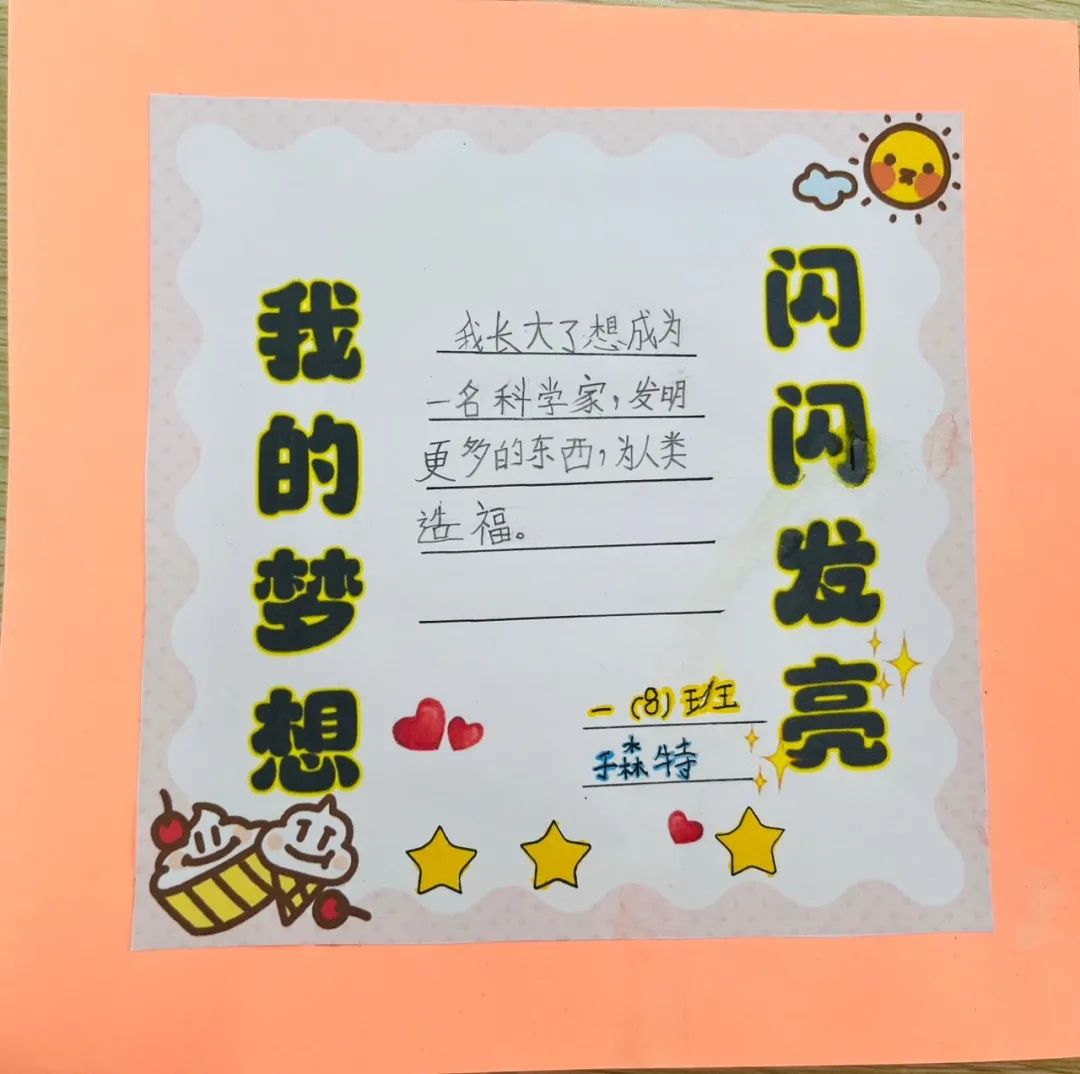 我的梦想
我长大了想成为
一名科学家，发明
更多的东西，为人类
造福。
闪闪发亮
一（8）班
森特